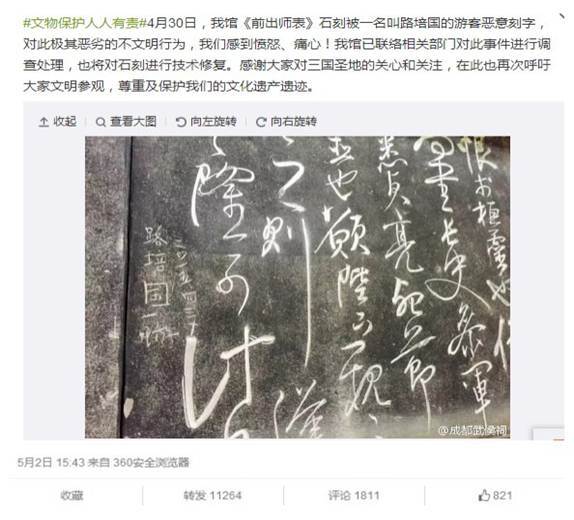 #文物保护人人有责#4月30日，我馆《前出师表》石刻被一名叫路培国的游客恶意刻字，
对此极其恶劣的不文明行为，我们感到愤怒、痛心！我馆已联络相关部门对此事件进行调
查处理，也将对石刻进行技术修复。感谢大家对三国圣地的关心和关注，在此也再次呼吁
大家文明参观，尊重及保护我们的文化遗产遗迹。
收起 查看大图 向左旋转 向右旋转
恨於桓靈也侍
書長史參軍
悉貞亮死節
臣也願陛下親
之則漢
之隆可計日
路培国
@成都武侯祠
5月2日 15:43 来自 360安全浏览器
收藏 转发 11264 评论 1811 821